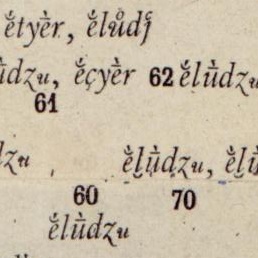 ĕ́tyĕ̀r, ĕ́lŭ̊dj
ŭ̀dzu, ĕ́çyĕ̀r 62 ĕ́lŭ̀dzu
61
dzu ĕ́l̮ŭ̀dzu, ĕ́l̮ŭ̀
60 70
ĕ́lŭ̀dzu